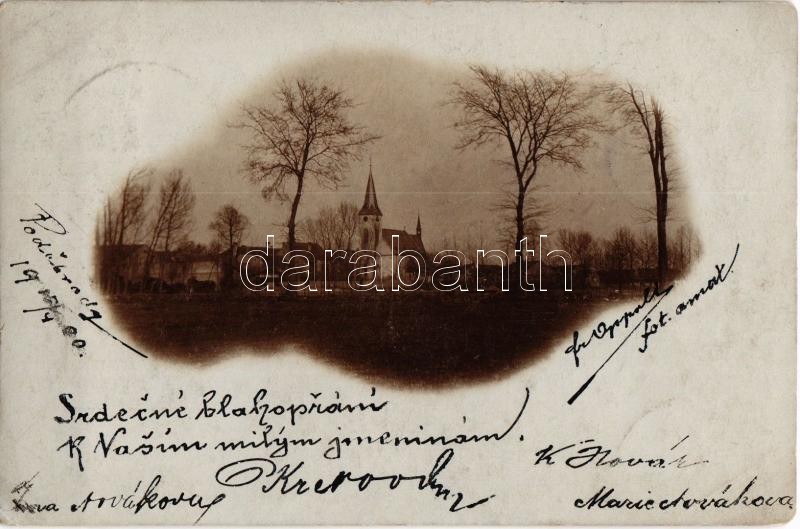 Poděbrady
19
00
darabanth
fr Oppelt
fot. amat.
Srdečné blahopřání
k Vašim milým jmeninám.
K Kovář
Nováková
Marie Nováková